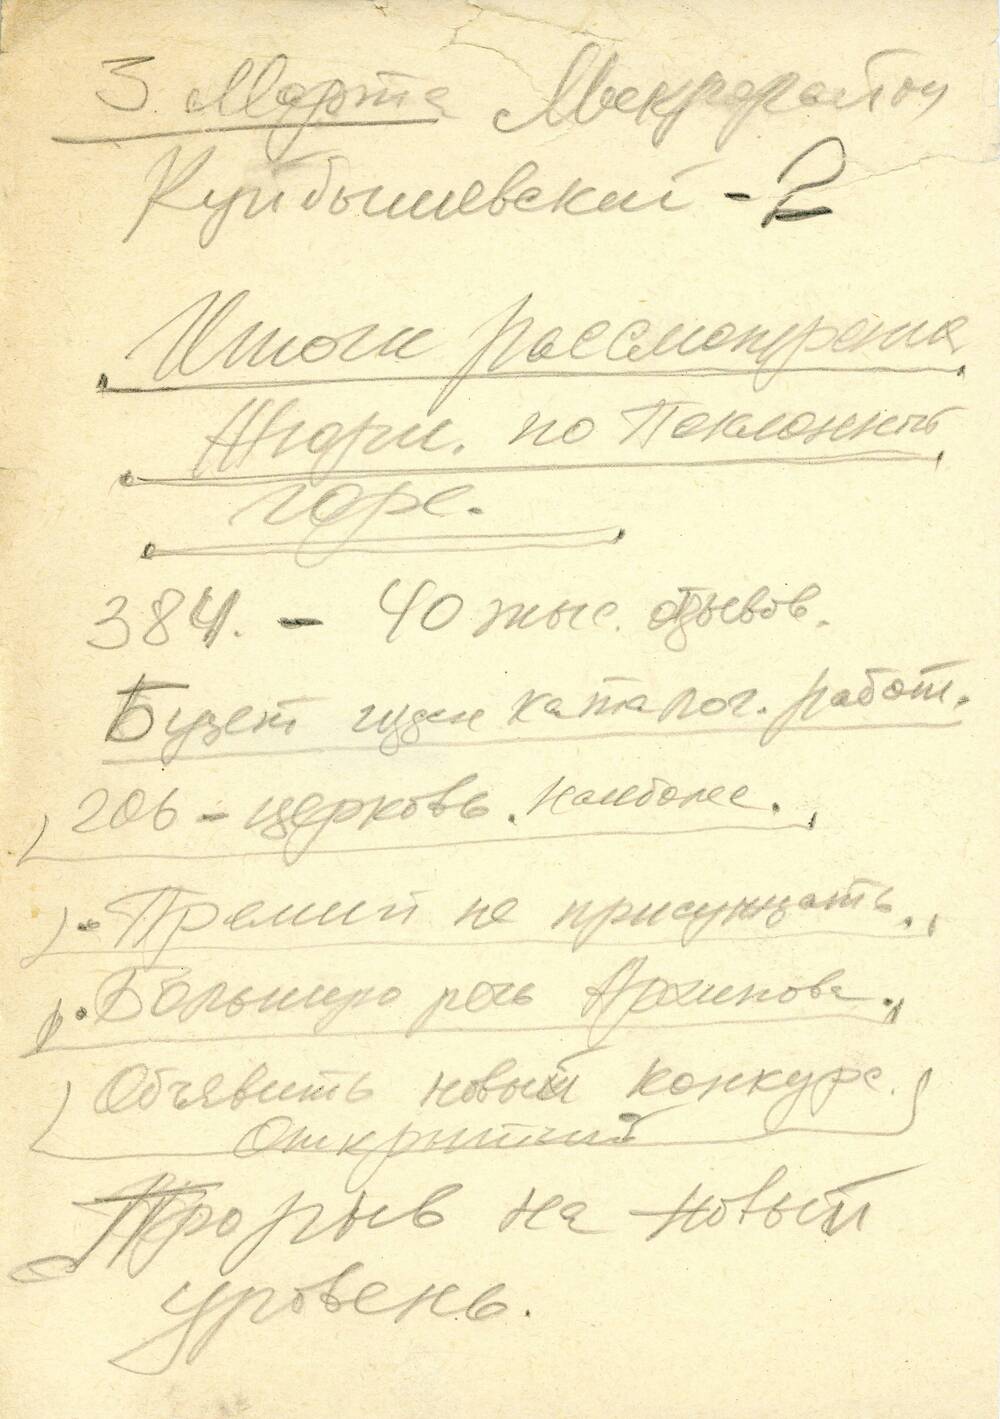 3 Марта Микрорайон
Куйбышевский - 2
Итоги рассмотрения
Жюри. по Поклонной
горе.
384. - 40 тыс. отзывов.
Будет издан каталог. работ.
206 - церковь. наиболее.
Премий не присуждать.
Большую речь Архипова.
Объявить новый конкурс.
Открытый
Прорыв на новый
уровень.